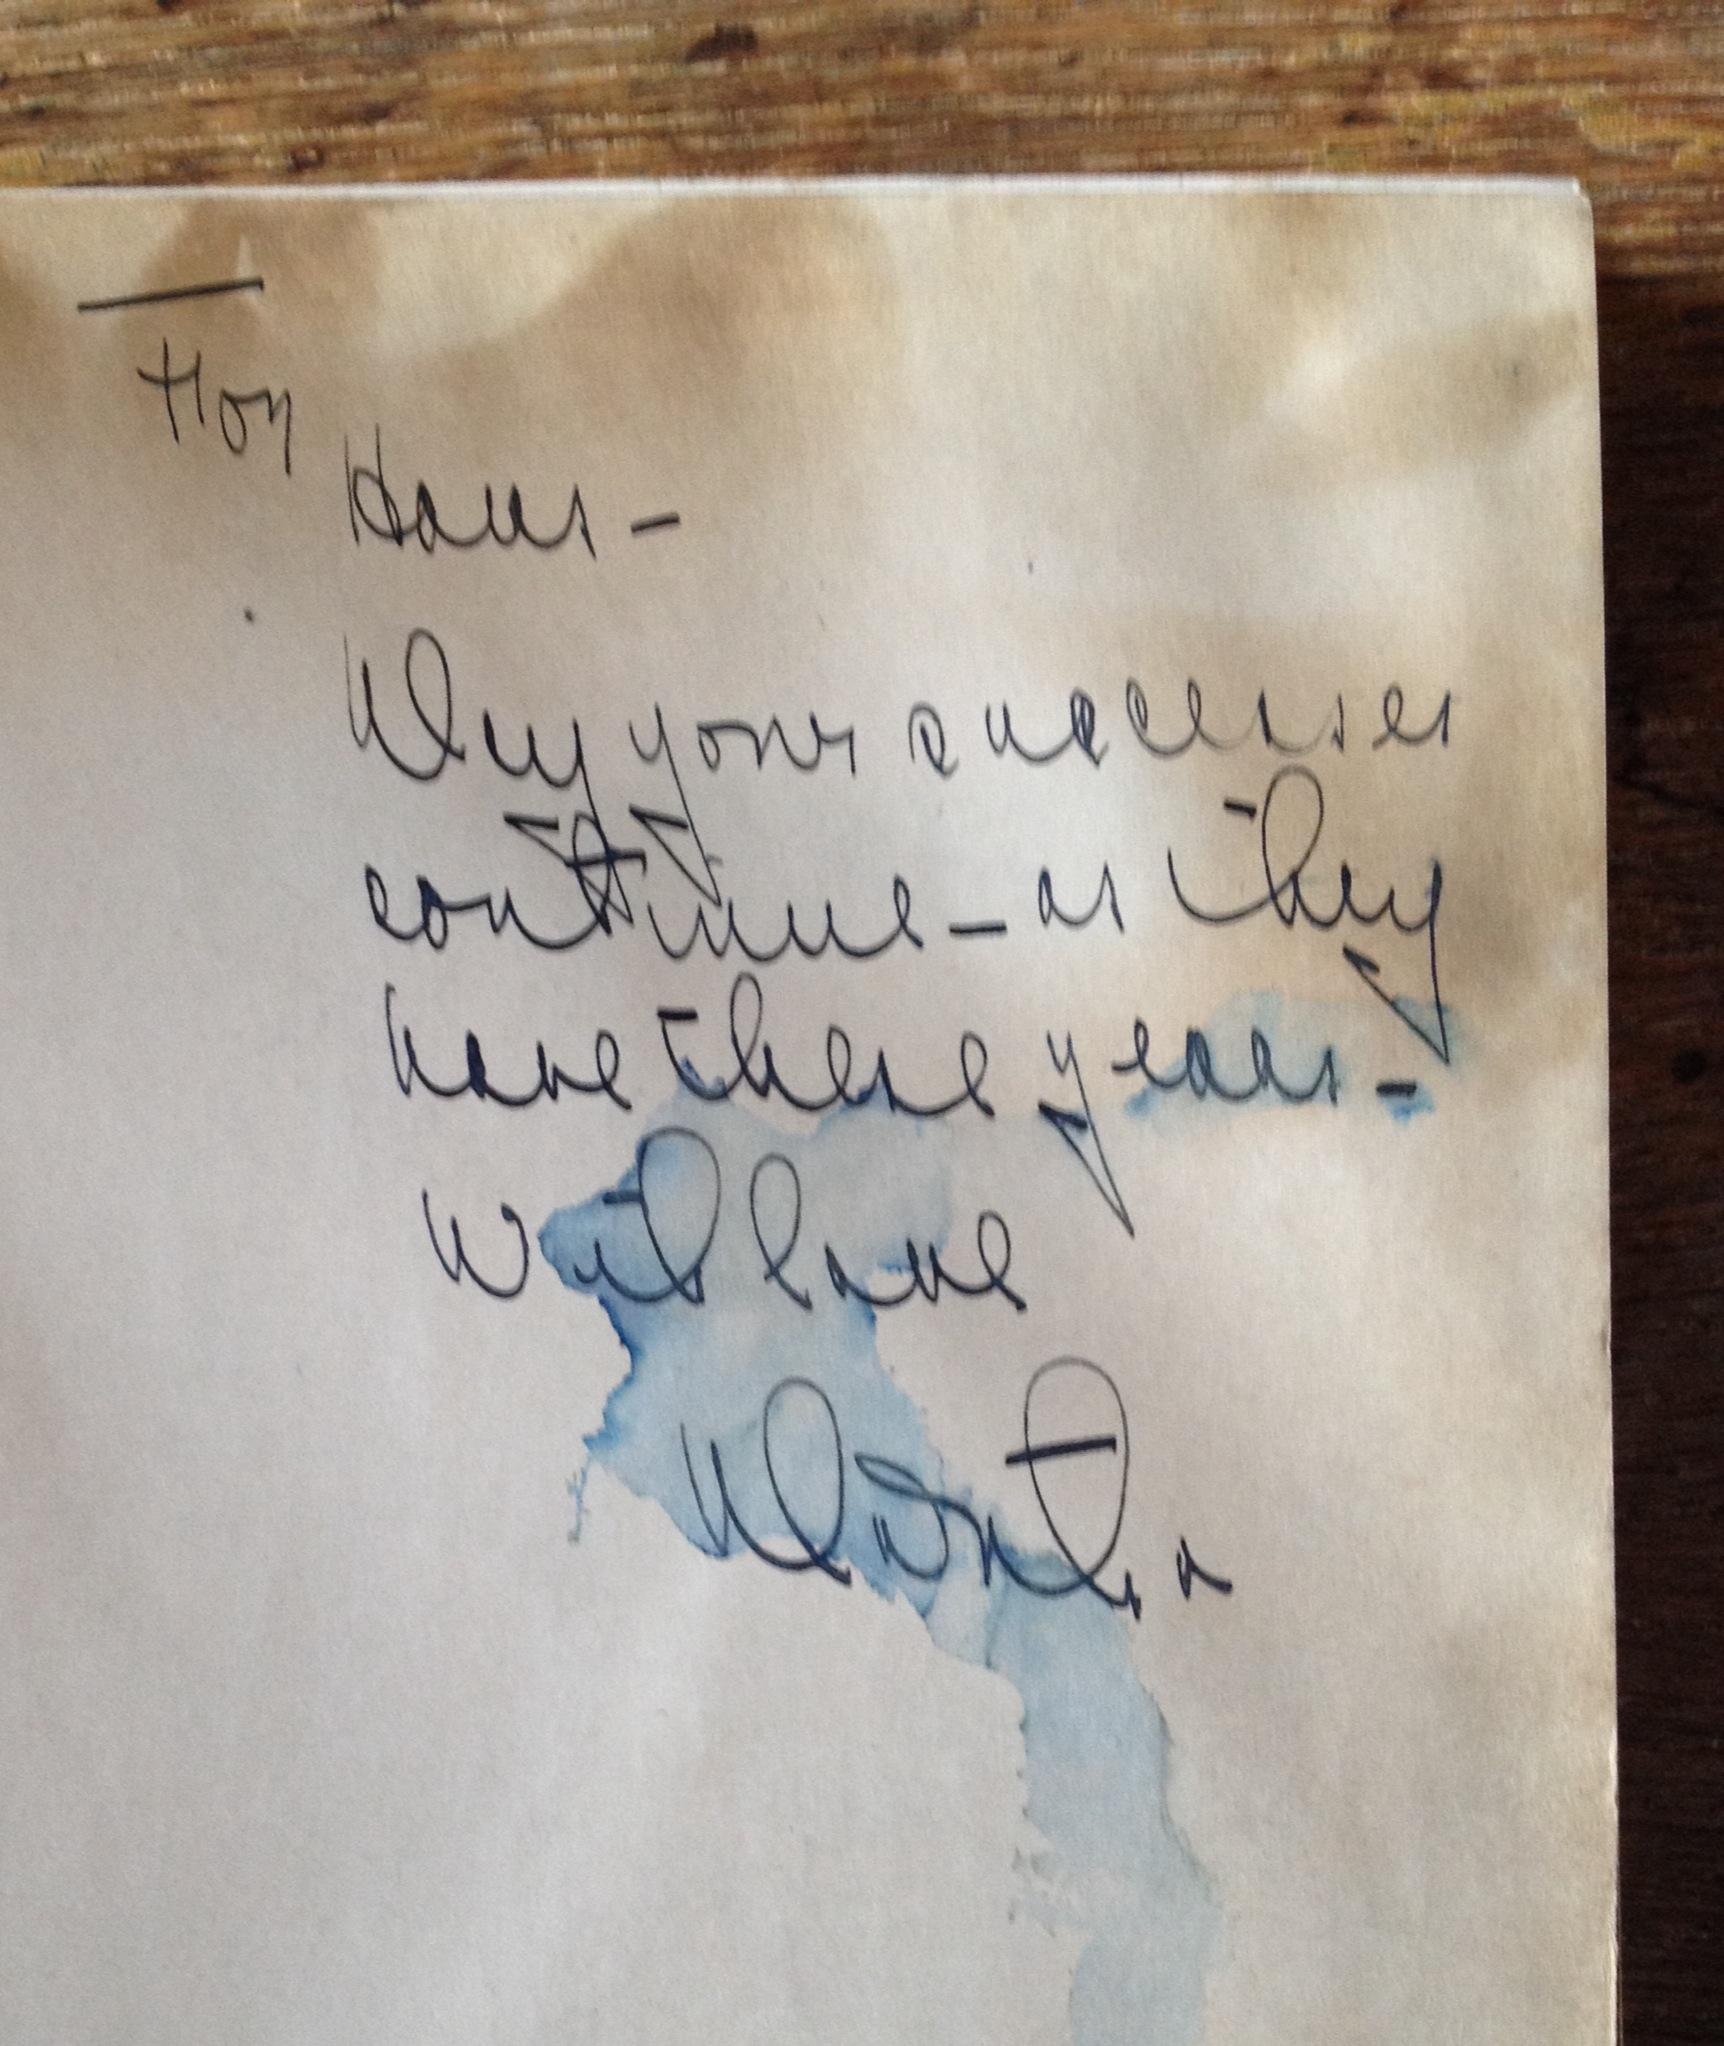 For
Hans -
May your successes
continue - as they
have these years -
With love
Martha